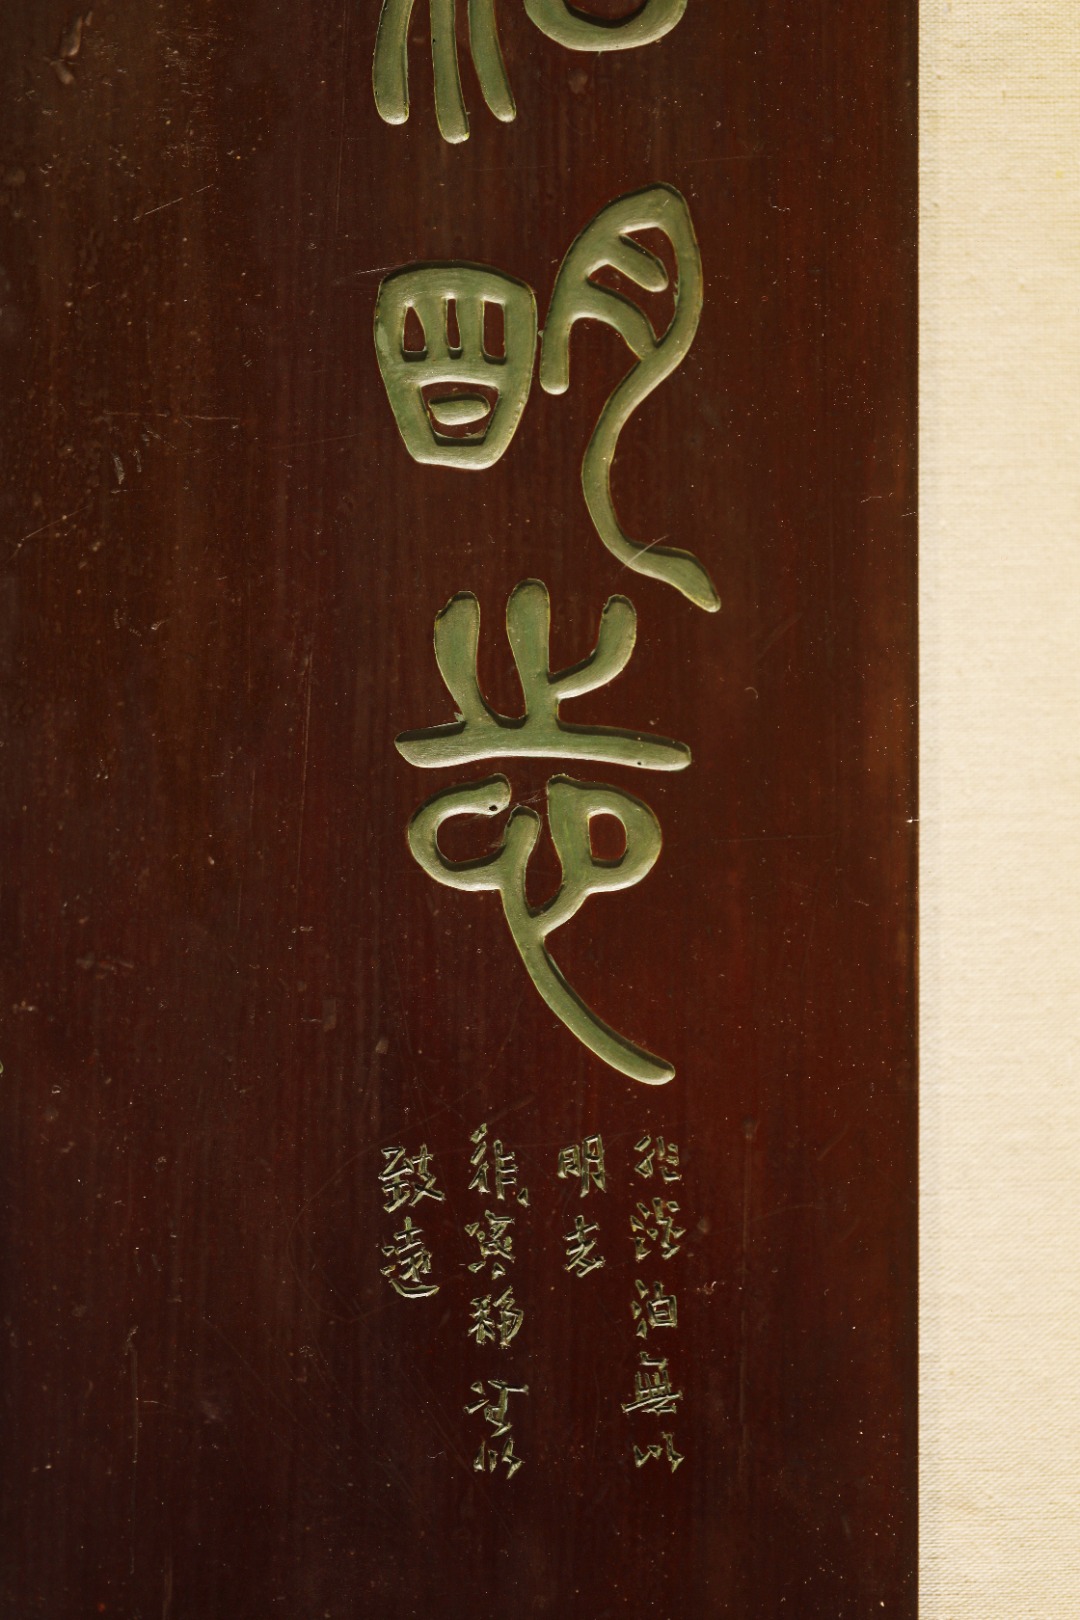 明志
非淡泊無以
明志
非寧以
致遠